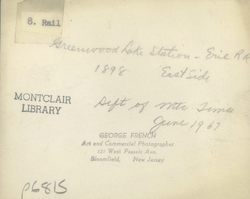 8. Rail
Greenwood Lake Station - Erie R.R.
1898 East Side
MONTCLAIR
LIBRARY
Gift of Mr.
June 1967
GEORGE FRENCH
Art and Commercial Photographer
Bloomfield, New Jersey
p6815